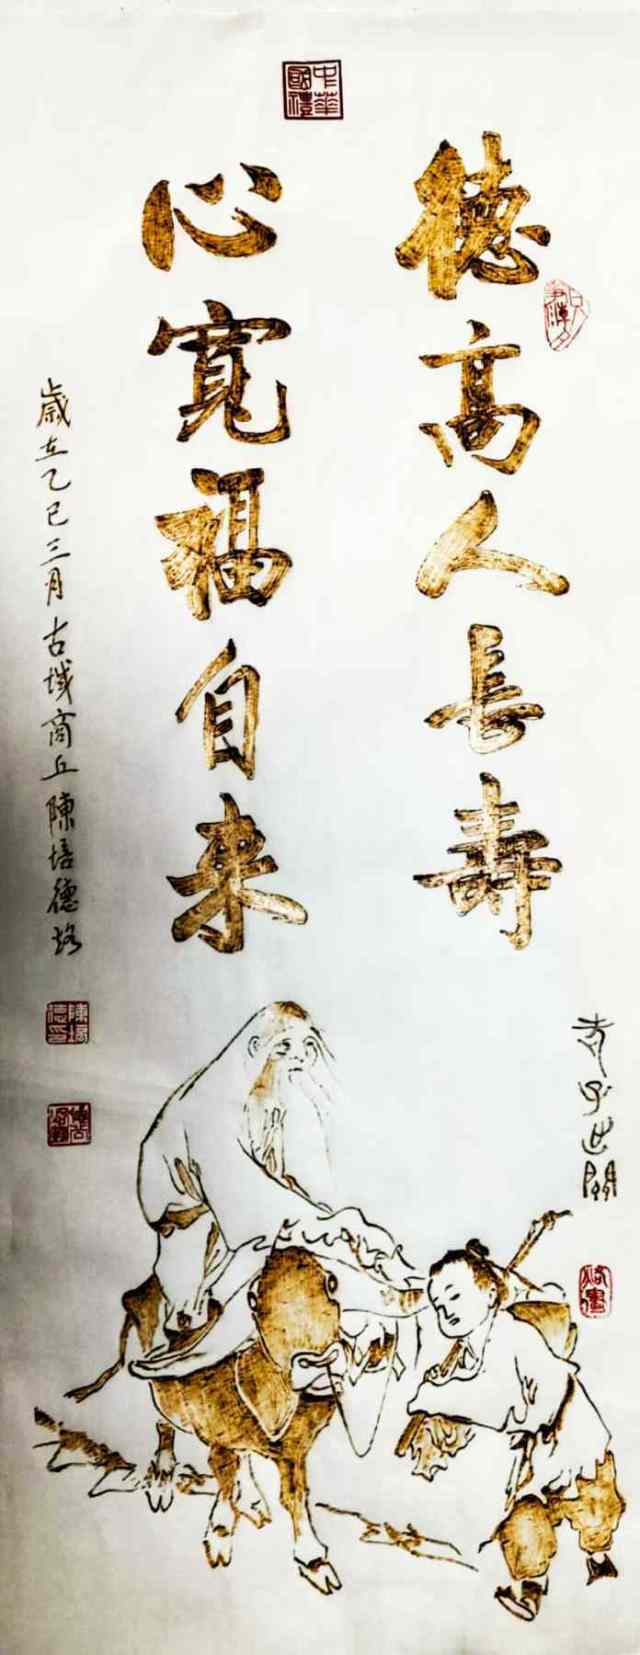 中華國禮
德高人長壽
心寬福自来
歲在乙巳三月古城商丘陳培德烙
陳培德印
老子出關
烙畫